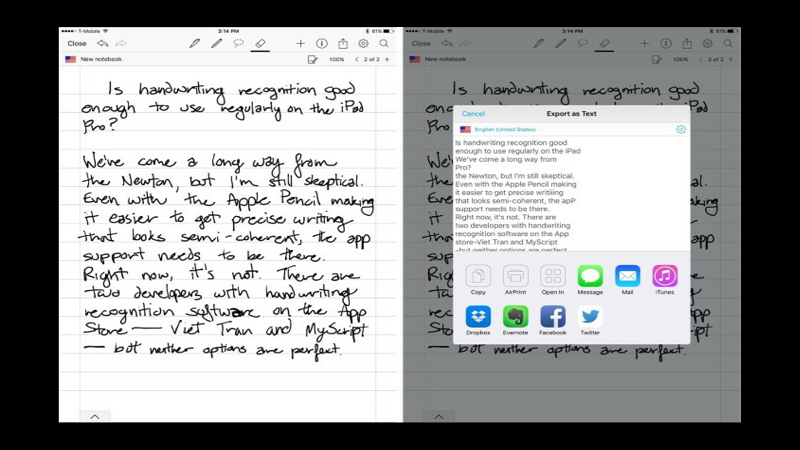 T-Mobile 3:14 PM 81%
Close
New notebook 100% 2 of 2
Is handwriting recognition good
enough to use regularly on the iPad
Pro?
We've come a long way from
the Newton, but I'm still skeptical.
Even with the Apple Pencil making
it easier to get precise writing
that looks semi-coherent, the app
support needs to be there.
Right now, it's not. There are
two developers with handwriting
recognition software on the App
Store — Viet Tran and MyScript
— but neither options are perfect.
T-Mobile 3:14 PM 81%
Close
New notebook 100% 2 of 2
Is handwriting recognition good
Cancel Export as Text
English (United States)
Is handwriting recognition good
enough to use regularly on the iPad
We've come a long way from
Pro?
the Newton, but I'm still skeptical.
Even with the Apple Pencil making
it easier to get precise writiiing
that looks semi-coherent, the apP
support needs to be there.
Right now, it's not. There are
two developers with handwriting
recognition software on the App
store-Viet Tran and MyScript
-but neither options are perfect
Copy AirPrint Open In Message Mail iTunes
Dropbox Evernote Facebook Twitter
— but neither options are perfect.